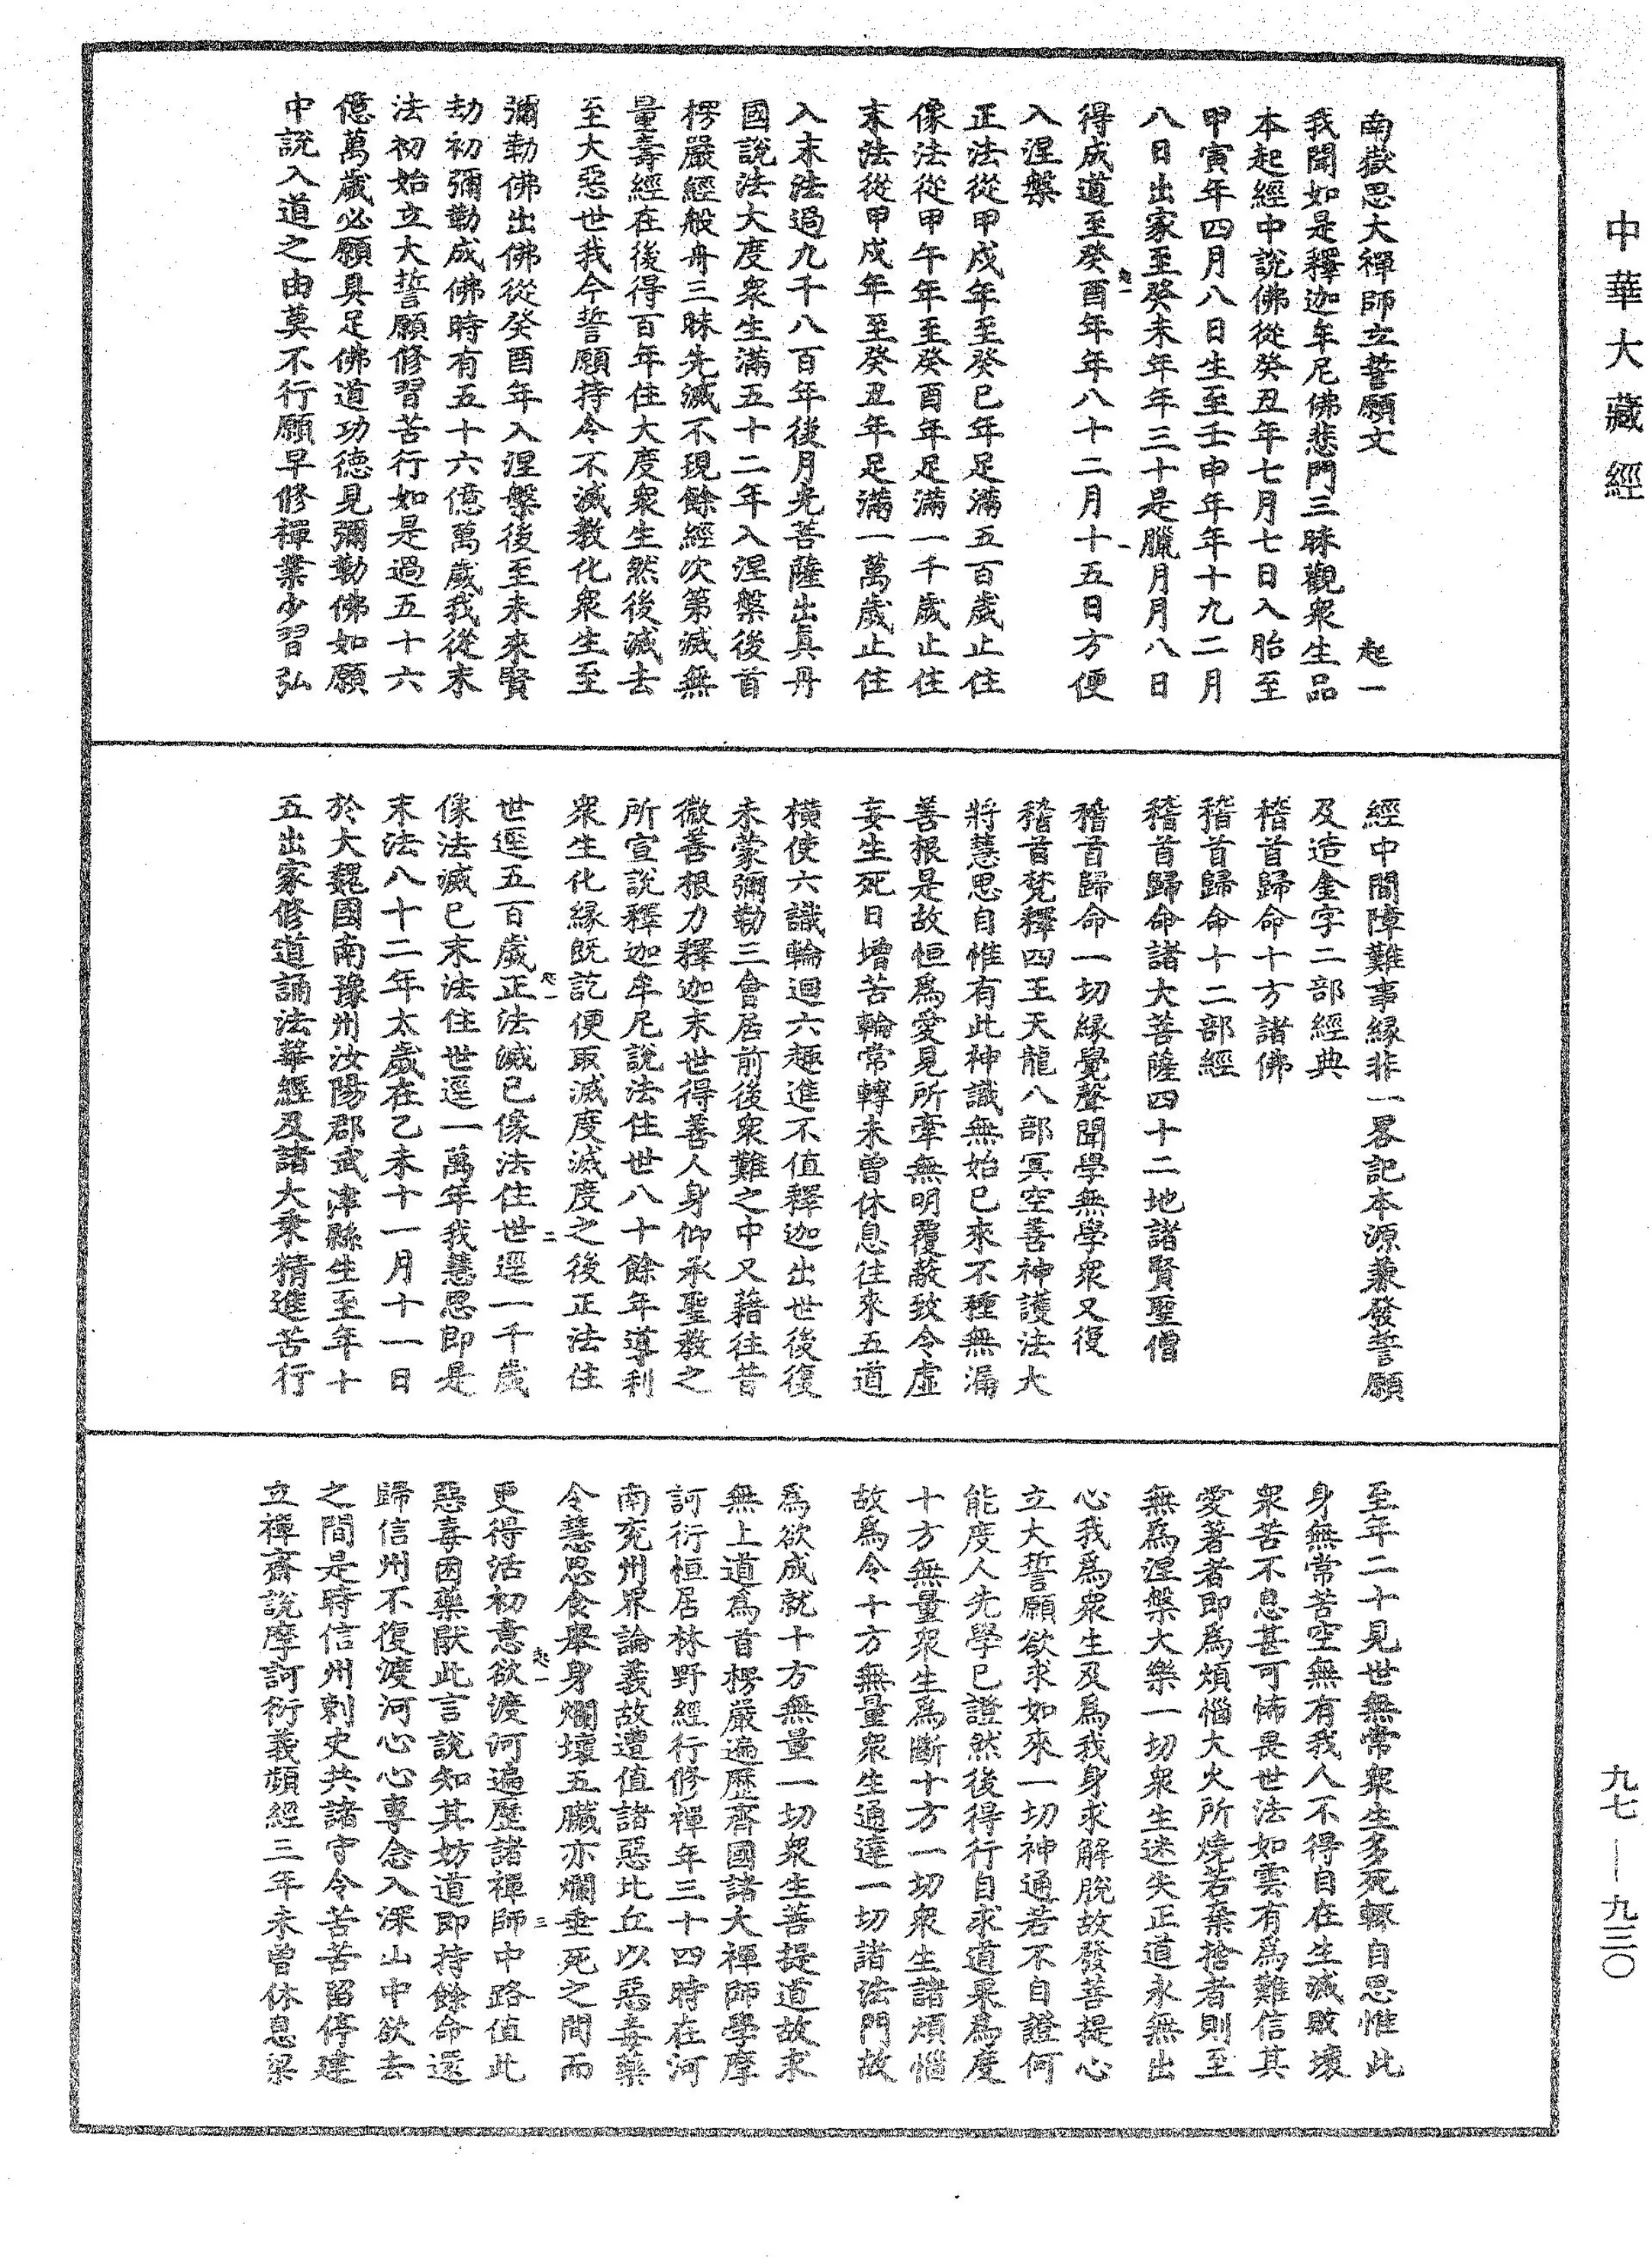 中華大藏經
南嶽思大禪師立誓願文　起一
我聞如是釋迦牟尼佛悲門三昧觀衆生品
本起經中說佛從癸丑年七月七日入胎至
甲寅年四月八日生至壬申年年十九二月
八日出家至癸未年年三十是臘月月八日
得成道至癸酉年年八十二月十五日方便
入涅槃
正法從甲戌年至癸巳年足滿五百歲止住
像法從甲午年至癸酉年足滿一千歲止住
末法從甲戌年至癸丑年足滿一萬歲止住
入末法過九千八百年後月光菩薩出眞丹
國說法大度衆生滿五十二年入涅槃後首
楞嚴經般舟三昧先滅不現餘經次第滅無
量壽經在後得百年住大度衆生然後滅去
至大惡世我今誓願持令不滅教化衆生至
彌勒佛出佛從癸酉年入涅槃後至未來賢
劫初彌勒成佛時有五十六億萬歲我從末
法初始立大誓願修習苦行如是過五十六
億萬歲必願具足佛道功德見彌勒佛如願
中說入道之由莫不行願早修禪業少習弘
經中間障難事緣非一畧記本源兼發誓願
及造金字二部經典
稽首歸命十方諸佛
稽首歸命十二部經
稽首歸命諸大菩薩四十二地諸賢聖僧
稽首歸命一切緣覺聲聞學無學衆又復
稽首梵釋四王天龍八部冥空善神護法大
將慧思自惟有此神識無始已來不種無漏
善根是故恒爲愛見所牽無明覆蔽致令虛
妄生死日增苦輪常轉未曾休息往來五道
橫使六識輪迴六趣進不值釋迦出世後復
未蒙彌勒三會居前後衆難之中又藉往昔
微善根力釋迦末世得善人身仰承聖教之
所宣說釋迦牟尼說法住世八十餘年導利
衆生化緣既訖便取滅度滅度之後正法住
世逕五百歲正法滅已像法住世逕一千歲
像法滅已末法住世逕一萬年我慧思即是
末法八十二年太歲在乙未十一月十一日
於大魏國南豫州汝陽郡武津縣生至年十
五出家修道誦法華經及諸大乘精進苦行
至年二十見世無常衆生多死輒自思惟此
身無常苦空無有我人不得自在生滅敗壞
衆苦不息甚可怖畏世法如雲有爲難信其
愛著者即爲煩惱大火所燒若棄捨者則至
無爲涅槃大樂一切衆生迷失正道永無出
心我爲衆生及爲我身求解脫故發菩提心
立大誓願欲求如來一切神通若不自證何
能度人先學已證然後得行自求道果爲度
十方無量衆生爲斷十方一切衆生諸煩惱
故爲令十方無量衆生通達一切諸法門故
爲欲成就十方無量一切衆生菩提道故求
無上道爲首楞嚴遍歷齊國諸大禪師學摩
訶衍恒居林野經行修禪年三十四時在河
南兖州界論義故遭值諸惡比丘以惡毒藥
令慧思食舉身爛壞五臟亦爛垂死之間而
更得活初意欲渡河遍歷諸禪師中路值此
惡毒困藥猒此言說知其妨道即持餘命還
歸信州不復渡河心心專念入深山中欲去
之間是時信州剌史共諸守令苦苦留停建
立禪齋說摩訶衍義頻經三年未曾休息梁
九七—九三〇